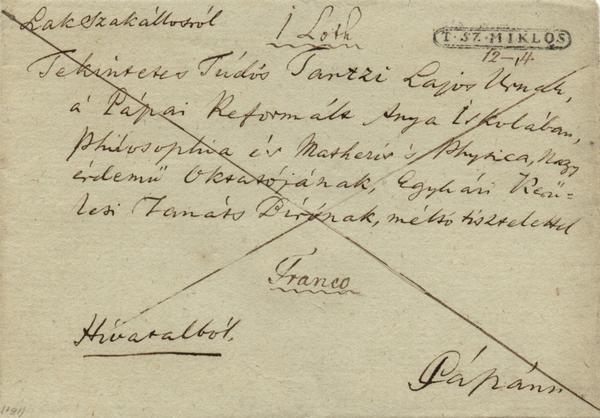 Lak Szakállosról
1 Loth
T. SZ. MIKLOS
12-4
Tekintetes Tudós Tarczi Lajos Urnak,
á Pápai Reformált Anya Iskolában,
Philosophia és Mathezis's Physica, Nagy
érdemű Oktatójának, Egyházi Kerü-
leti Tanáts Birónak, méltó tisztelettel
Franco
Hivatalból.
Pápán